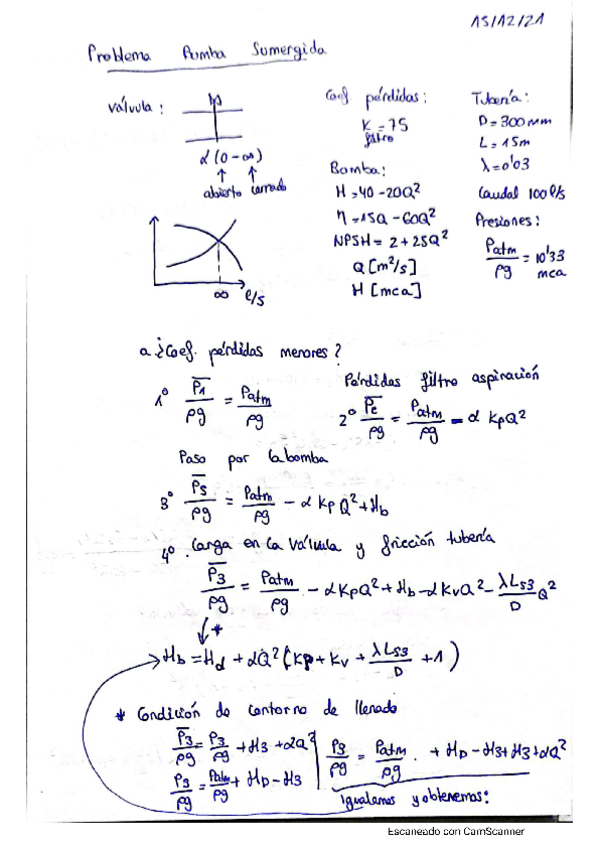 15/12/21
Problema Bomba Sumergida
válvula :
α (0 - ∞)
↑ ↑
abierto cerrado
∞ ℓ/s
Coef pérdidas :
K = 75
filtro
Bomba :
H = 40 - 20Q²
η = 15Q - 60Q²
NPSH = 2 + 25Q²
Q [m²/s]
H [mca]
Tubería :
D = 300 mm
L = 15m
λ = 0'03
Caudal 100 ℓ/s
Presiones :
Patm/ρg = 10'33 mca
a ¿Coef. pérdidas menores ?
1º P̅1/ρg = Patm/ρg
Pérdidas filtro aspiración
2º P̅e/ρg = Patm/ρg - α KpQ²
Paso por la bomba
3º P̅s/ρg = Patm/ρg - α Kp Q² + Hb
4º Carga en la válvula y fricción tubería
P̅3/ρg = Patm/ρg - αKpQ² + Hb - αKvQ² - λLs3/D Q²
*
Hb = Hd + αQ² (Kp + Kv + λLs3/D + 1)
* Condición de contorno de llenado
P̅3/ρg = P3/ρg + H3 + αQ²
P3/ρg = Patm/ρg + HD - H3
P3/ρg = Patm/ρg . + HD - H3 + H3 + αQ²
Igualamos y obtenemos :
Escaneado con CamScanner